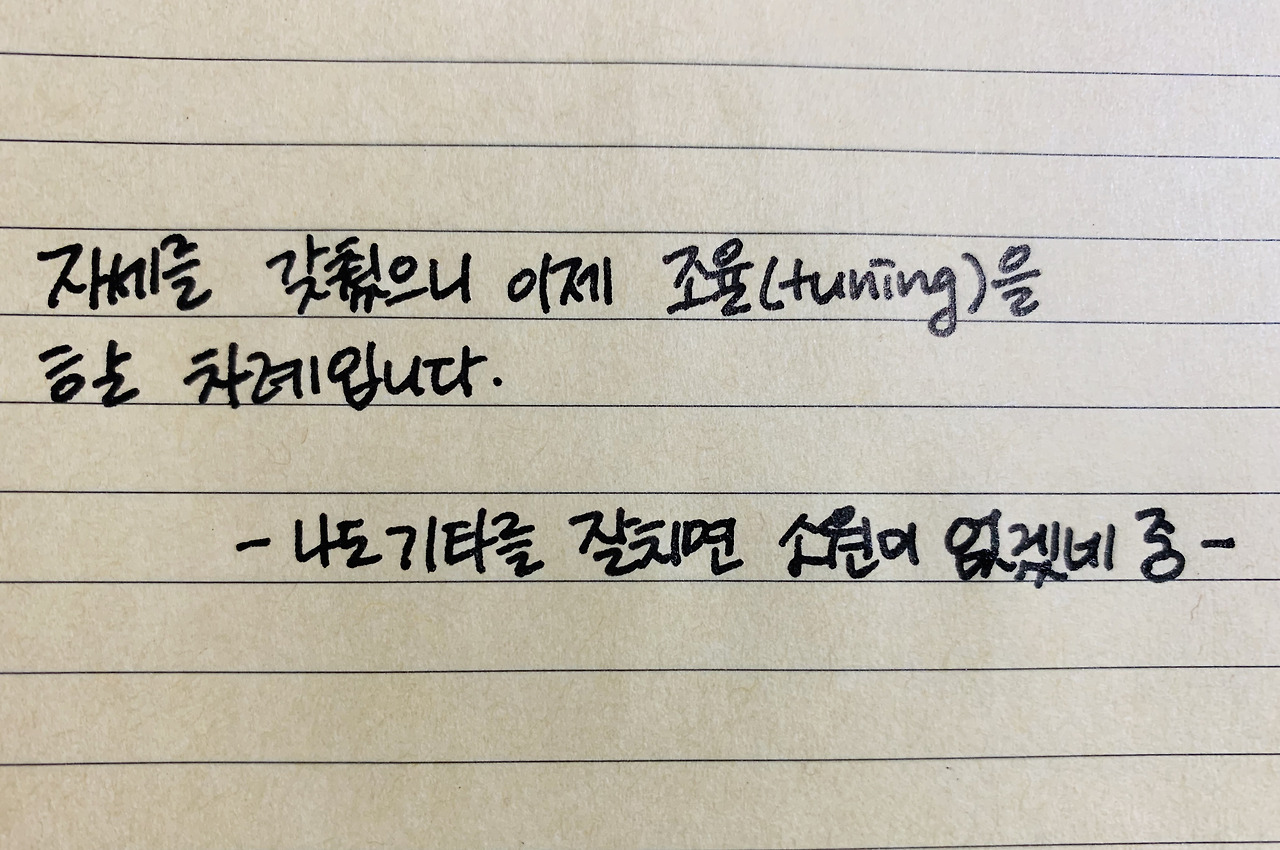 자세를 갖췄으니 이제 조율(tuning)을
할 차례입니다.
- 나도 기타를 잘치면 소원이 없겠네 중 -